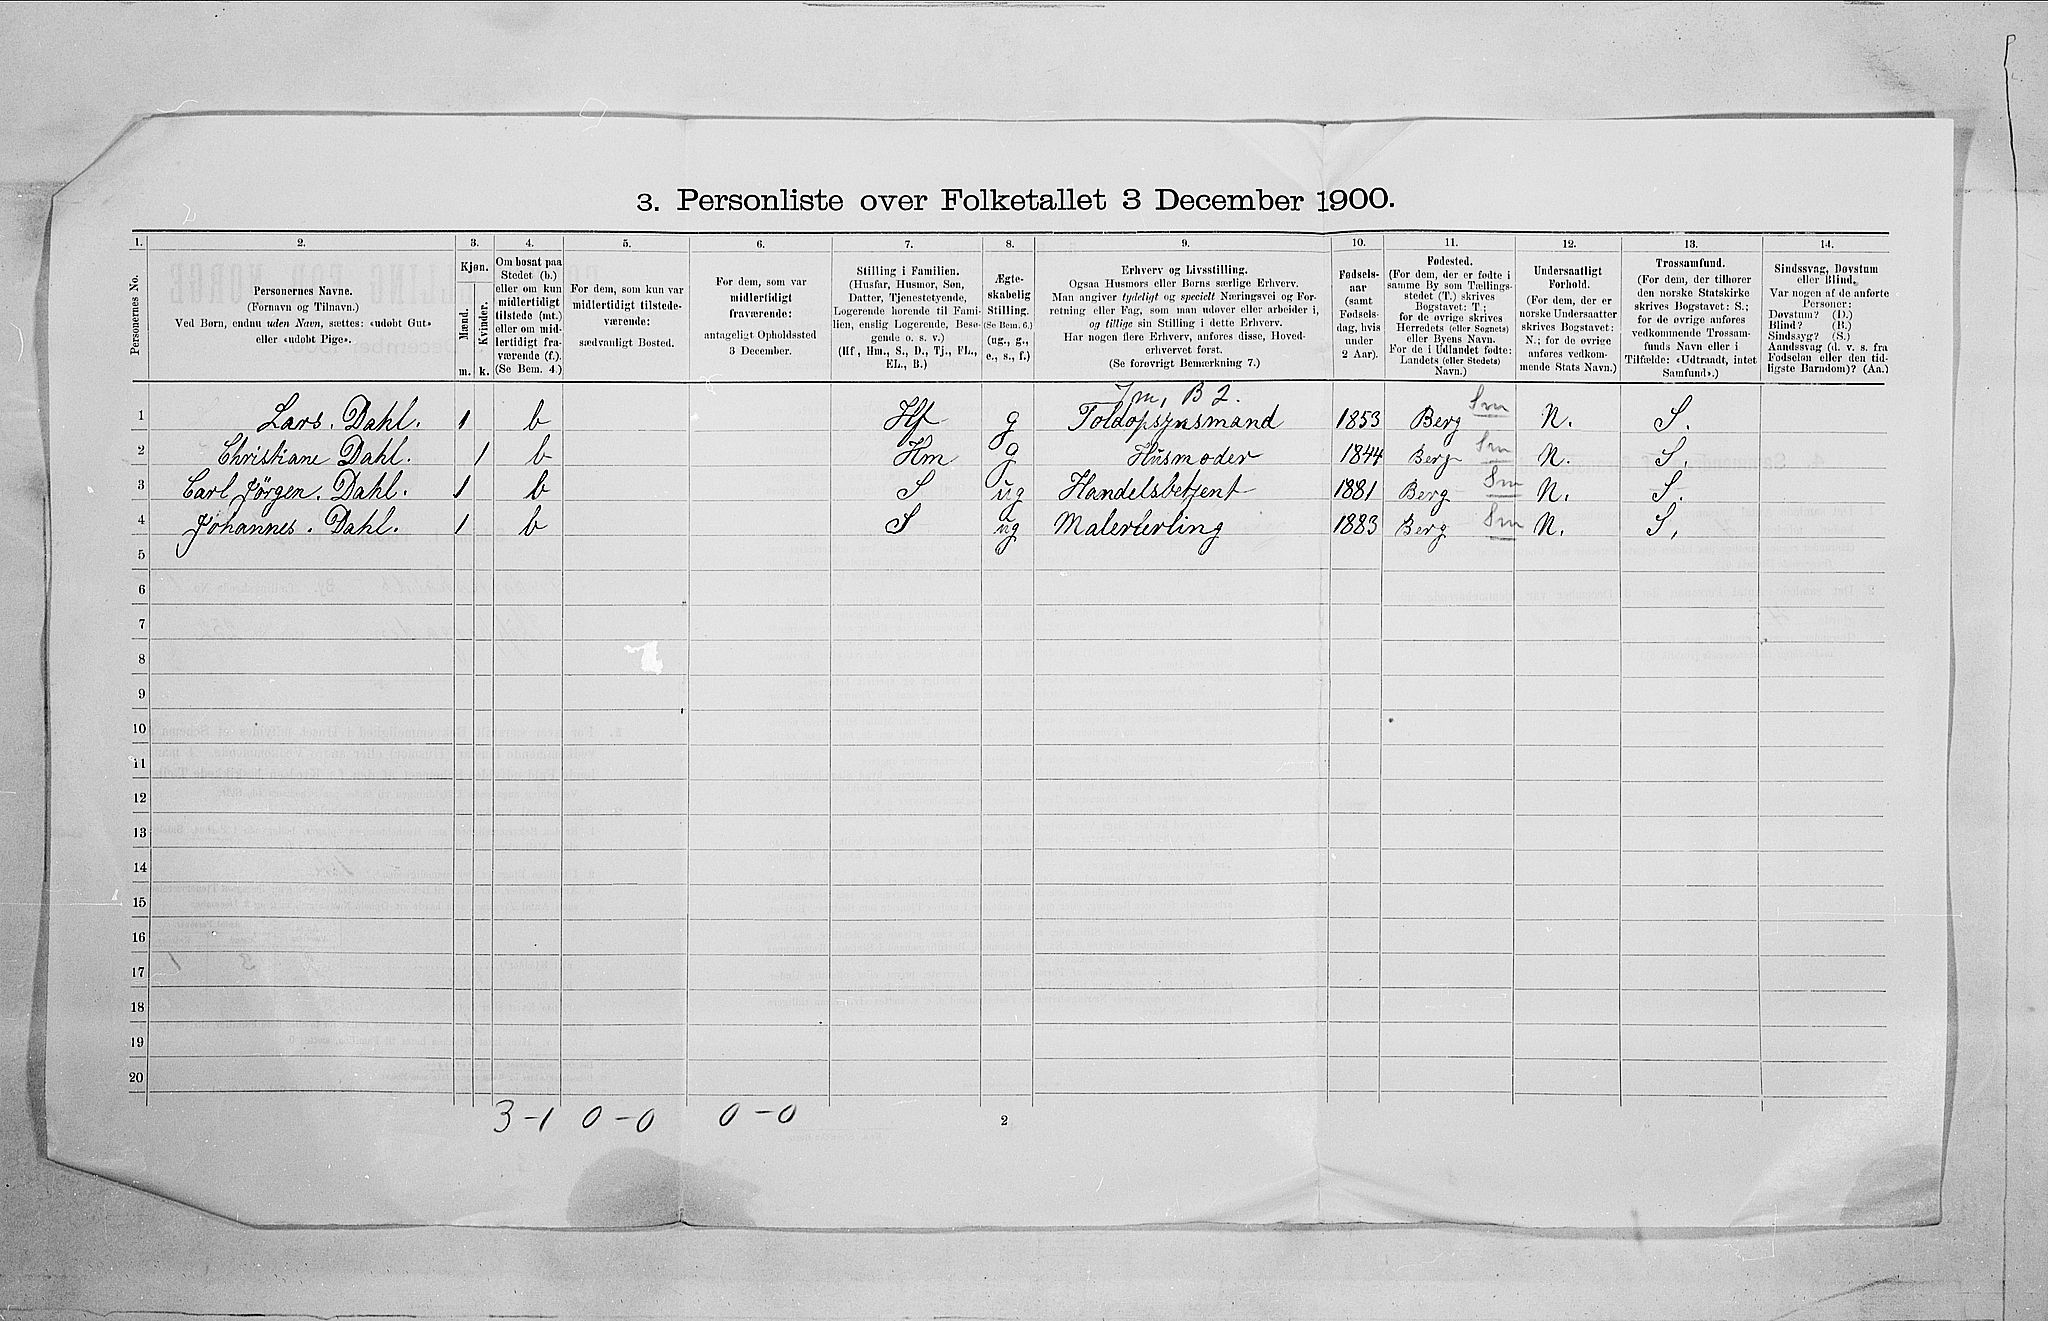 3. Personliste over Folketallet 3 December 1900.
1. 2. 3. 4. 5. 6. 7. 8. 9. 10. 11. 12. 13. 14.
Personernes No.
Personernes Navne.
(Fornavn og Tilnavn.)
Ved Børn, endnu uden Navn, sættes: «udøbt Gut»
eller «udøbt Pige».
Kjøn.
Mænd.
Kvinder.
m. k.
Om bosat paa
Stedet (b.)
eller om kun
midlertidigt
tilstede (mt.)
eller om mid-
lertidigt fra-
værende (f.).
(Se Bem. 4.)
For dem, som kun var
midlertidigt tilstede-
værende:
sædvanligt Bosted.
For dem, som var
midlertidigt
fraværende:
antageligt Opholdssted
3 December.
Stilling i Familien.
(Husfar, Husmor, Søn,
Datter, Tjenestetyende,
Logerende hørende til Fami-
lien, enslig Logerende, Besø-
gende o. s. v.)
(Hf., Hm., S., D., Tj., FL.,
EL., B.)
Ægte-
skabelig
Stilling.
(Se Bem. 6.)
(ug., g.,
e., s., f.)
Erhverv og Livsstilling.
Ogsaa Husmors eller Børns særlige Erhverv.
Man angiver tydeligt og specielt Næringsvei og For-
retning eller Fag, som man udøver eller arbeider i,
og tillige sin Stilling i dette Erhverv.
Har nogen flere Erhverv, anføres disse, Hoved-
erhvervet først.
(Se forøvrigt Bemærkning 7.)
Fødsels-
aar
(samt
Fødsels-
dag, hvis
under
2 Aar).
Fødested.
(For dem, der er fødte i
samme By som Tællings-
stedet (T.) skrives
Bogstavet: T.;
for de øvrige skrives
Herredets (eller Sognets)
eller Byens Navn.
For de i Udlandet fødte:
Landets (eller Stedets)
Navn.)
Undersaatligt
Forhold.
(For dem, der er
norske Undersaatter
skrives Bogstavet:
N.; for de øvrige
anføres vedkom-
mende Stats Navn.)
Trossamfund.
(For dem, der tilhører
den norske Statskirke
skrives Bogstavet: S.;
for de øvrige anføres
vedkommende Trossam-
funds Navn eller i
Tilfælde: «Udtraadt, intet
Samfund».)
Sindssvag, Døvstum
eller Blind.
Var nogen af de anførte
Personer:
Døvstum? (D.)
Blind? (B.)
Sindssyg? (S.)
Aandssvag (d. v. s. fra
Fødselen eller den tid-
ligste Barndom)? (Aa.)
Jm, B 2.
1 Lars. Dahl. 1 b Hf g Toldopsynsmand 1853 Berg Sm N. S.
2 Christiane Dahl. 1 b Hm g Husmoder 1844 Berg Sm N. S.
3 Carl Jörgen. Dahl. 1 b S ug Handelsbetjent 1881 Berg Sm N. S.
4 Johannes. Dahl. 1 b S ug Malerlerling 1883 Berg Sm N. S,
5
6
7
8
9
10
11
12
13
14
15
16
17
18
19
20
3-1 0-0 0-0
2